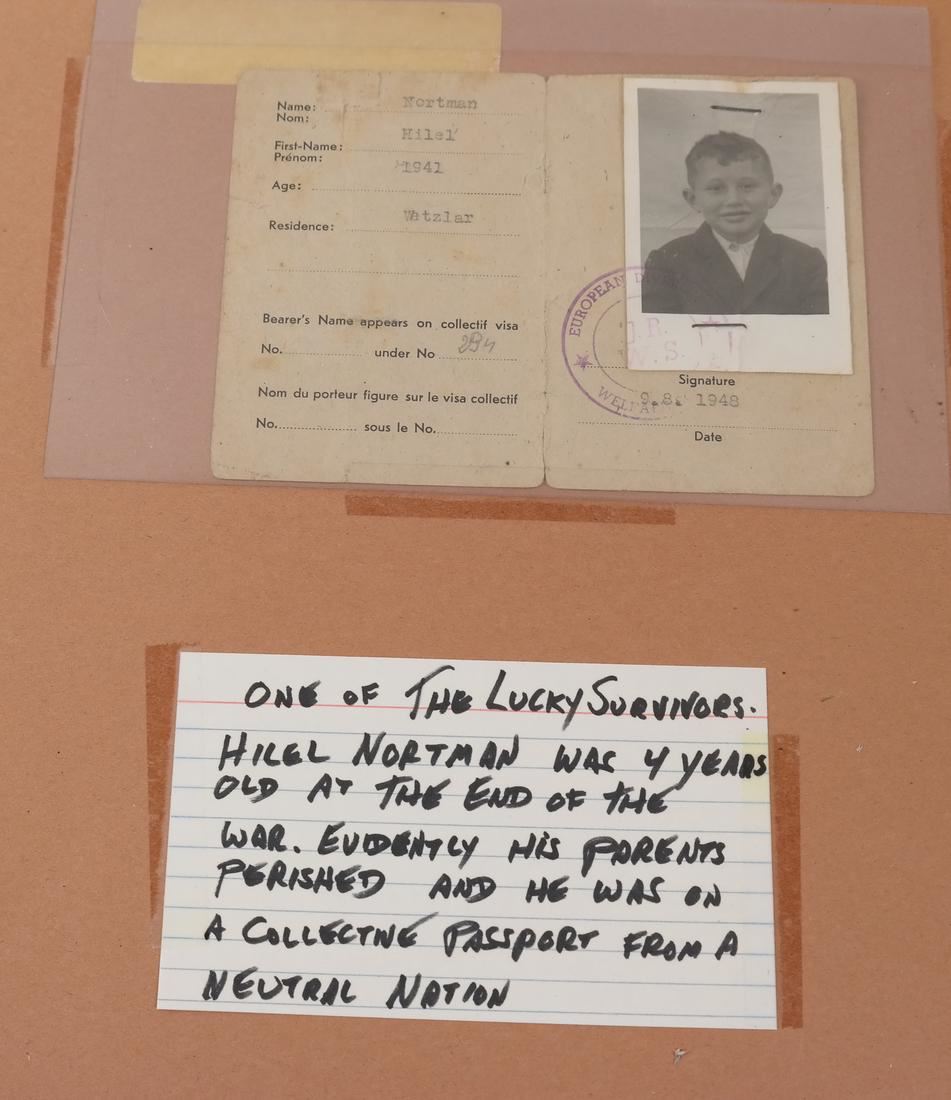 Name: Nortman
Nom:
First-Name: Hilel
Prénom:
Age: 1941
Residence: Wetzlar
Bearer's Name appears on collectif visa
No. under No 294
Nom du porteur figure sur le visa collectif
No. sous le No.
EUROPEAN
WELFA
W. S.
Signature
9. 8. 1948
Date
ONE OF THE LUCKY SURVIVORS.
HILEL NORTMAN WAS 4 YEARS
OLD AT THE END OF THE
WAR. EVIDENTLY HIS PARENTS
PERISHED AND HE WAS ON
A COLLECTIVE PASSPORT FROM A
NEUTRAL NATION